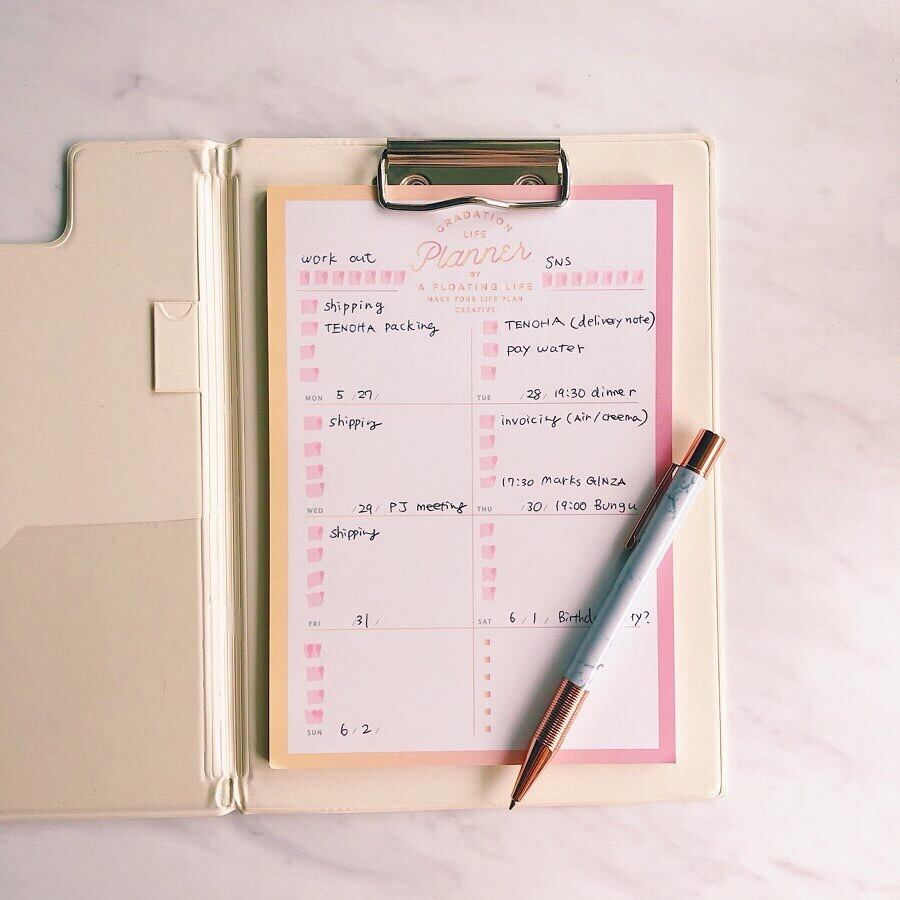 GRADATION
LIFE
Planner
BY
A FLOATING LIFE
MAKE YOUR LIFE PLAN
CREATIVE
work out
SNS
shipping
TENOHA packing
MON 5/27/
TENOHA (delivery note)
pay water
TUE /28/ 19:30 dinner
shipping
WED /29/ PJ meeting
invoicing (Air/creema)
17:30 Marks GINZA
THU /30/ 19:00 Bungu
shipping
FRI /31/
SAT 6/1/
SUN 6/2/